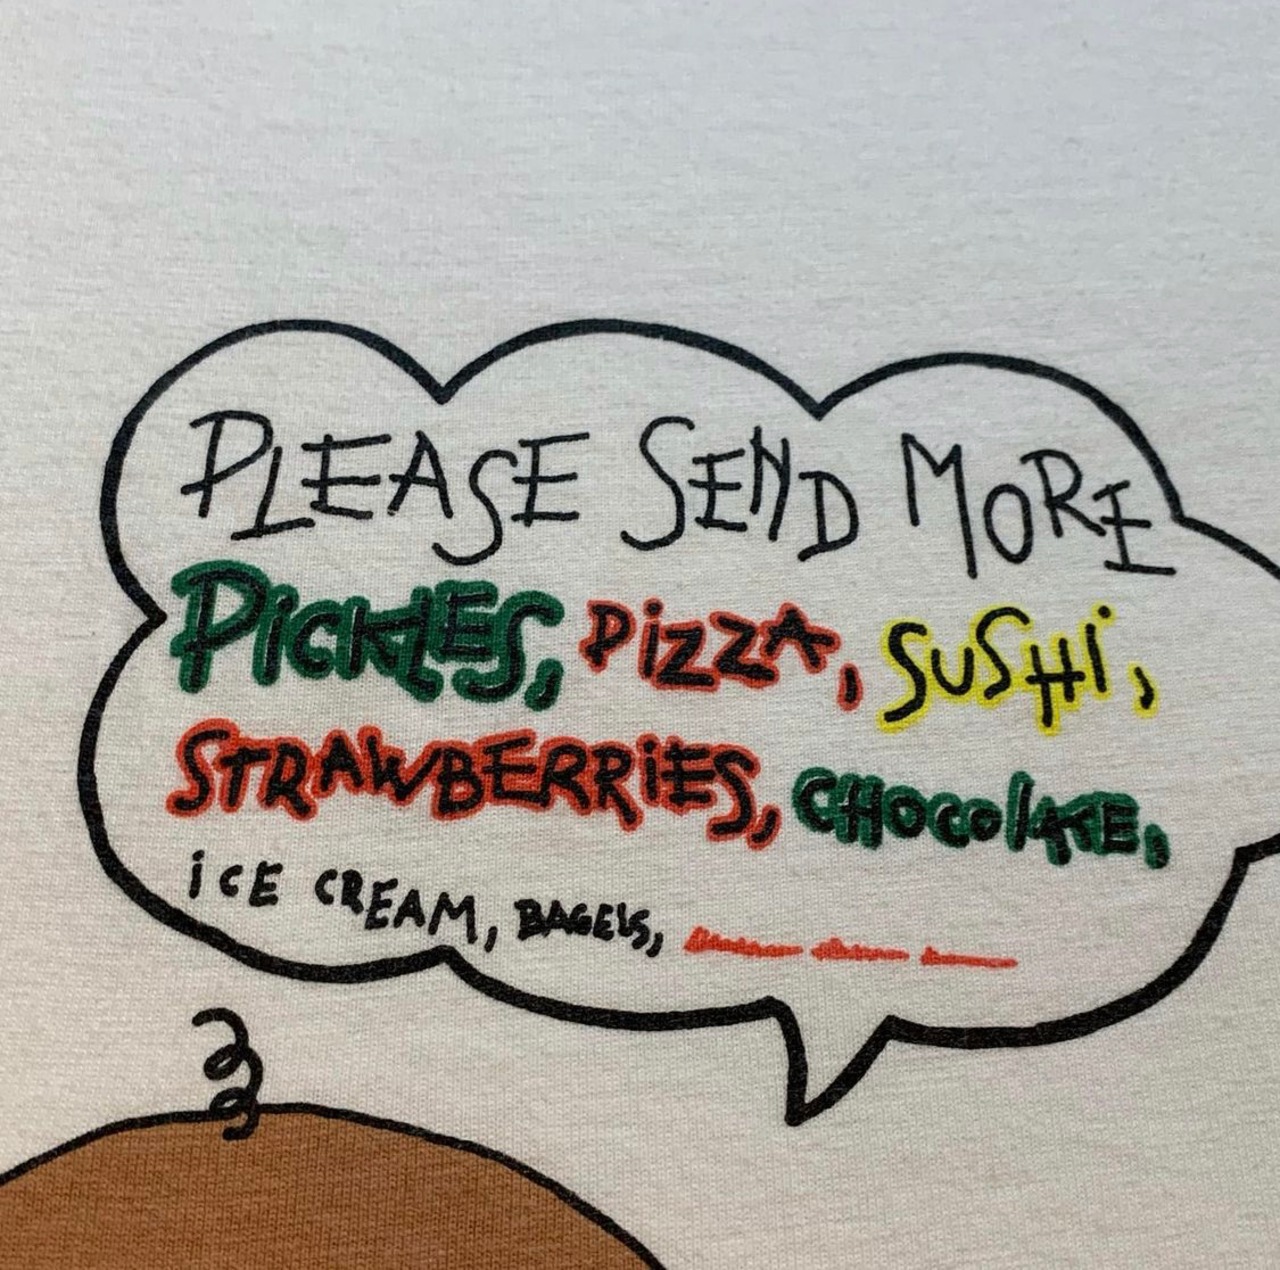 PLEASE SEND MORE
PiCKLES, PiZZA, SUSHi,
STRAWBERRiES, CHOCOlATE,
iCE CREAM, BAGElS,